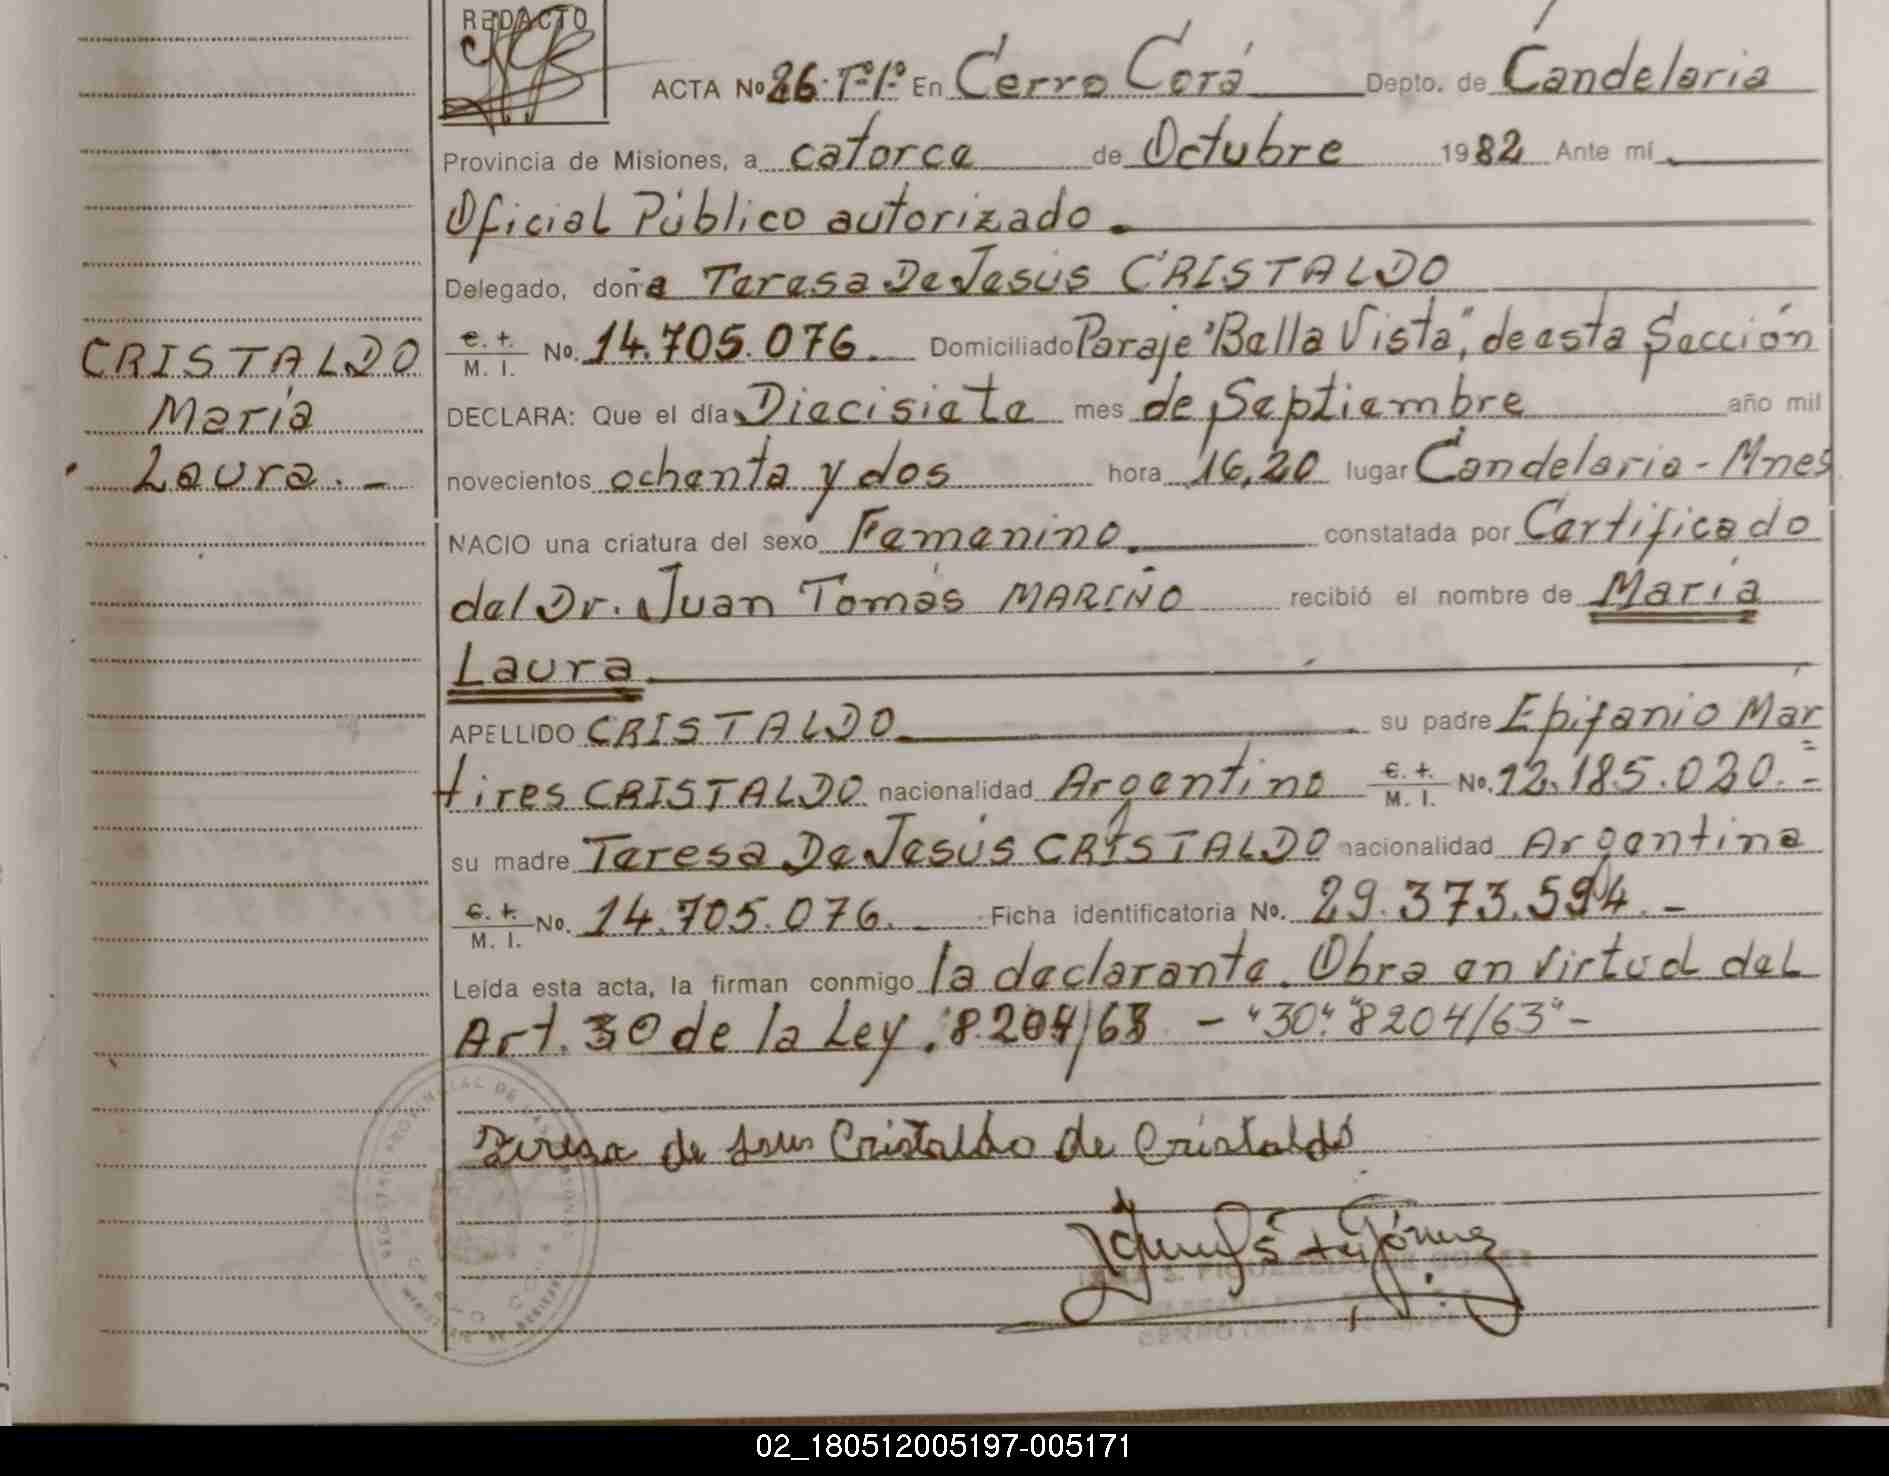 REDACTO
ACTA No 26. Tº1º En Cerro Corá Depto. de Candelaria
Provincia de Misiones, a catorce de Octubre 1982 Ante mí
Oficial Público autorizado.
Delegado, doña Teresa De Jesús CRISTALDO
C. I. M. I. No. 14.705.076. Domiciliado Paraje "Bella Vista", de esta Sección
CRISTALDO
María
Laura. -
DECLARA: Que el día Diecisiete mes de Septiembre año mil
novecientos ochenta y dos hora 16,20 lugar Candelaria - Mnes
NACIO una criatura del sexo Femenino. constatada por Certificado
del Dr. Juan Tomás MARIÑO recibió el nombre de María
Laura
APELLIDO CRISTALDO su padre Epifanio Már
tires CRISTALDO nacionalidad Argentino C. I. M. I. No. 12.185.020. =
su madre Teresa De Jesús CRISTALDO nacionalidad Argentina
C. I. M. I. No. 14.705.076. Ficha identificatoria No. 29.373.594. -
Leída esta acta, la firman conmigo la declarante. Obra en virtud del
Art. 30 de la Ley. 8.204/63 - "30". "8204/63" -
Teresa de Jesus Cristaldo de Cristaldo
02_180512005197-005171